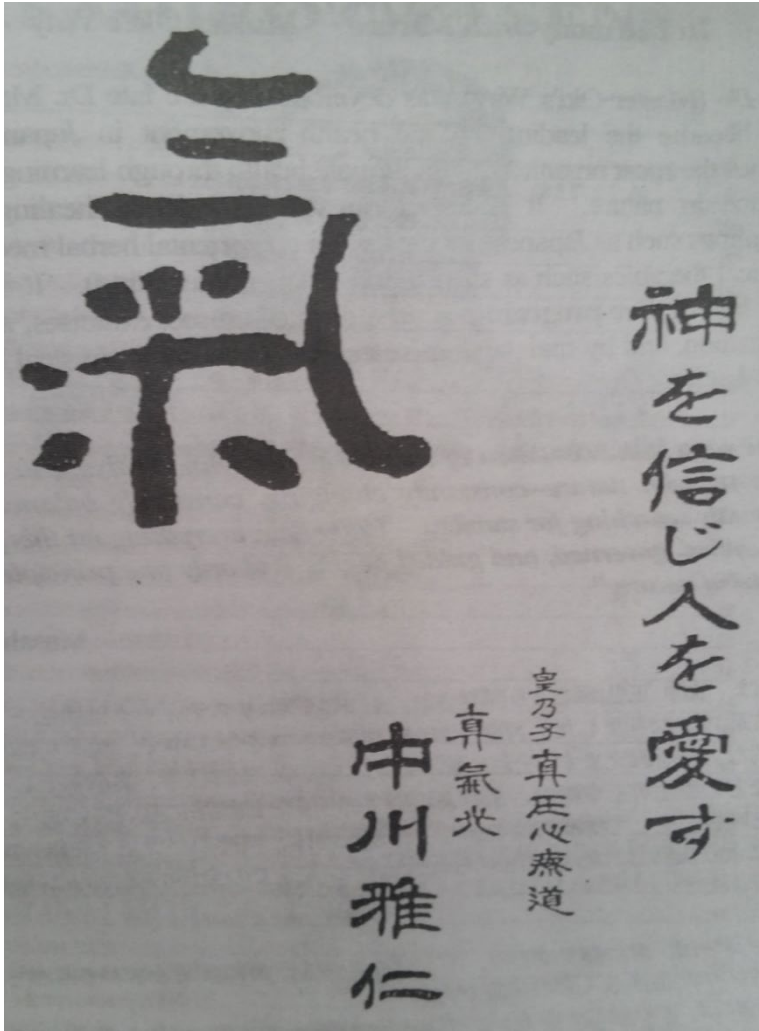 神を信じ人を愛す
皇乃子真圧心療道
真氣光
中川雅仁
氣